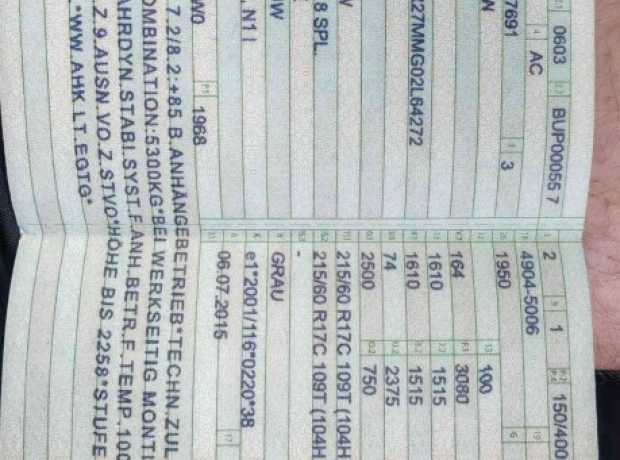 0603 BUP00055 7 2 1 150/400
AC 4904-5006
7691 3 1950
100
164 3080
1610 1515
27MMG02L64272 1610 1515
74 2375
2500 750
215/60 R17C 109T (104H
8 SPL. 215/60 R17C 109T (104H
-
GRAU
, N1 I e1*2001/116*0220*38
06.07.2015
W0 1968
7.2/8.2:+85 B.ANHÄNGEBETRIEB*TECHN.ZUL
OMBINATION:5300KG*BEI WERKSEITIG MONTI
AHRDYN.STABI.SYST.F.ANH.BETR.F.TEMP.100
.Z.9.AUSN.VO.Z.STVO*HÖHE BIS 2258*STUFE
.*WW.AHK LT.EGTG*